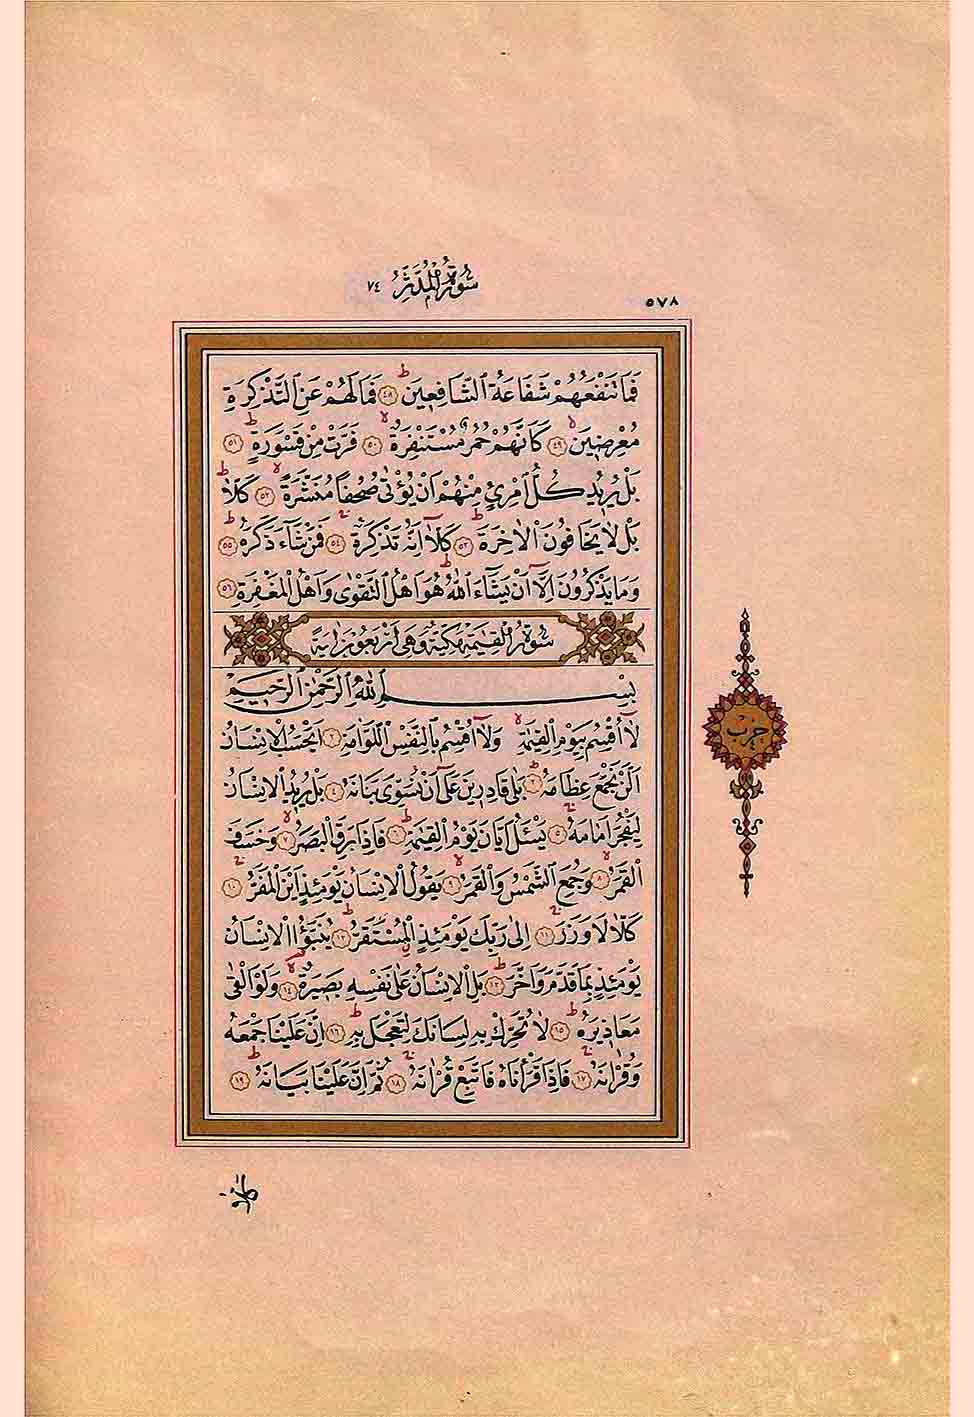 سُورَةُ الْمُدَّثِّرِ ٧٤
٥٧٨
فَمَا تَنْفَعُهُمْ شَفَاعَةُ الشَّافِعِينَ ﴿٤٨﴾ فَمَا لَهُمْ عَنِ التَّذْكِرَةِ
مُعْرِضِينَ ﴿٤٩﴾ كَاَنَّهُمْ حُمُرٌ مُسْتَنْفِرَةٌ ﴿٥٠﴾ فَرَّتْ مِنْ قَسْوَرَةٍ ﴿٥١﴾
بَلْ يُرِيدُ كُلُّ امْرِئٍ مِنْهُمْ اَنْ يُؤْتٰى صُحُفًا مُنَشَّرَةً ﴿٥٢﴾ كَلَّا
بَلْ لَا يَخَافُونَ الْاٰخِرَةَ ﴿٥٣﴾ كَلَّا اِنَّهُ تَذْكِرَةٌ ﴿٥٤﴾ فَمَنْ شَاءَ ذَكَرَهُ ﴿٥٥﴾
وَمَا يَذْكُرُونَ اِلَّا اَنْ يَشَاءَ اللّٰهُ هُوَ اَهْلُ التَّقْوٰى وَاَهْلُ الْمَغْفِرَةِ ﴿٥٦﴾
سُورَةُ الْقِيٰمَةِ مَكِّيَّةٌ وَهِيَ اَرْبَعُونَ اٰيَةً
بِسْمِ اللّٰهِ الرَّحْمٰنِ الرَّحِيمِ
لَا اُقْسِمُ بِيَوْمِ الْقِيٰمَةِ وَلَا اُقْسِمُ بِالنَّفْسِ اللَّوَّامَةِ ﴿٢﴾ اَيَحْسَبُ الْاِنْسَانُ
اَلَّنْ نَجْمَعَ عِظَامَهُ ﴿٣﴾ بَلٰى قَادِرِينَ عَلٰى اَنْ نُسَوِّيَ بَنَانَهُ ﴿٤﴾ بَلْ يُرِيدُ الْاِنْسَانُ
لِيَفْجُرَ اَمَامَهُ ﴿٥﴾ يَسْـَٔلُ اَيَّانَ يَوْمُ الْقِيٰمَةِ ﴿٦﴾ فَاِذَا بَرِقَ الْبَصَرُ ﴿٧﴾ وَخَسَفَ
الْقَمَرُ ﴿٨﴾ وَجُمِعَ الشَّمْسُ وَالْقَمَرُ ﴿٩﴾ يَقُولُ الْاِنْسَانُ يَوْمَئِذٍ اَيْنَ الْمَفَرُّ ﴿١٠﴾
كَلَّا لَا وَزَرَ ﴿١١﴾ اِلٰى رَبِّكَ يَوْمَئِذٍ الْمُسْتَقَرُّ ﴿١٢﴾ يُنَبَّؤُا الْاِنْسَانُ
يَوْمَئِذٍ بِمَا قَدَّمَ وَاَخَّرَ ﴿١٣﴾ بَلِ الْاِنْسَانُ عَلٰى نَفْسِهِ بَصِيرَةٌ ﴿١٤﴾ وَلَوْ اَلْقٰى
مَعَاذِيرَهُ ﴿١٥﴾ لَا تُحَرِّكْ بِهِ لِسَانَكَ لِتَعْجَلَ بِهِ ﴿١٦﴾ اِنَّ عَلَيْنَا جَمْعَهُ
وَقُرْاٰنَهُ ﴿١٧﴾ فَاِذَا قَرَأْنَاهُ فَاتَّبِعْ قُرْاٰنَهُ ﴿١٨﴾ ثُمَّ اِنَّ عَلَيْنَا بَيَانَهُ ﴿١٩﴾
حزب
كَلَّا بَلْ